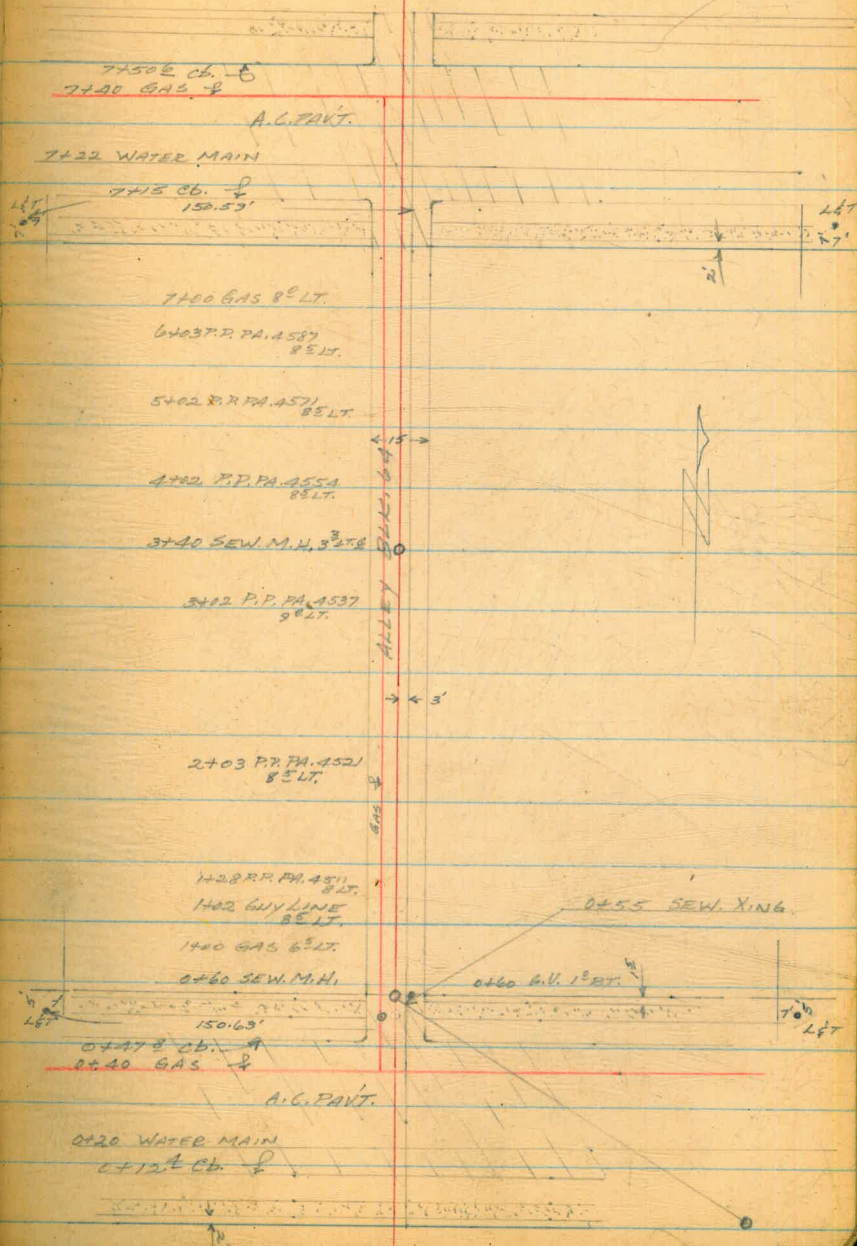 7+50⁶ Cb. ₵
7+40 GAS ₵
A.C. PAV'T.
7+22 WATER MAIN
7+15 Cb. ₵
150.59'
L&T
L&T
7'
2'
7+00 GAS 8⁰ LT.
6+03 P.P. PA. 4587
8⁵ LT.
5+02 P.P. PA. 4571
8⁵ LT.
←15→
4+02 P.P. PA. 4554
8⁵ LT.
ALLEY BLK. 64
3+40 SEW. M.H. 3³ LT. ₵
3+02 P.P. PA. 4537
9⁰ LT.
3'
2+03 P.P. PA. 4521
8⁵ LT.
GAS ₵
1+28 P.P. PA. 4511
8 LT.
1+02 GUY LINE
8⁵ LT.
0+55 SEW. XING
1+00 GAS 6⁵ LT.
0+60 SEW. M.H.
0+60 G.V. 1⁰ RT.
L&T
150.69'
7'
L&T
0+47⁸ Cb. ₵
0+40 GAS ₵
A.C. PAV'T.
0+20 WATER MAIN
0+12⁴ Cb. ₵